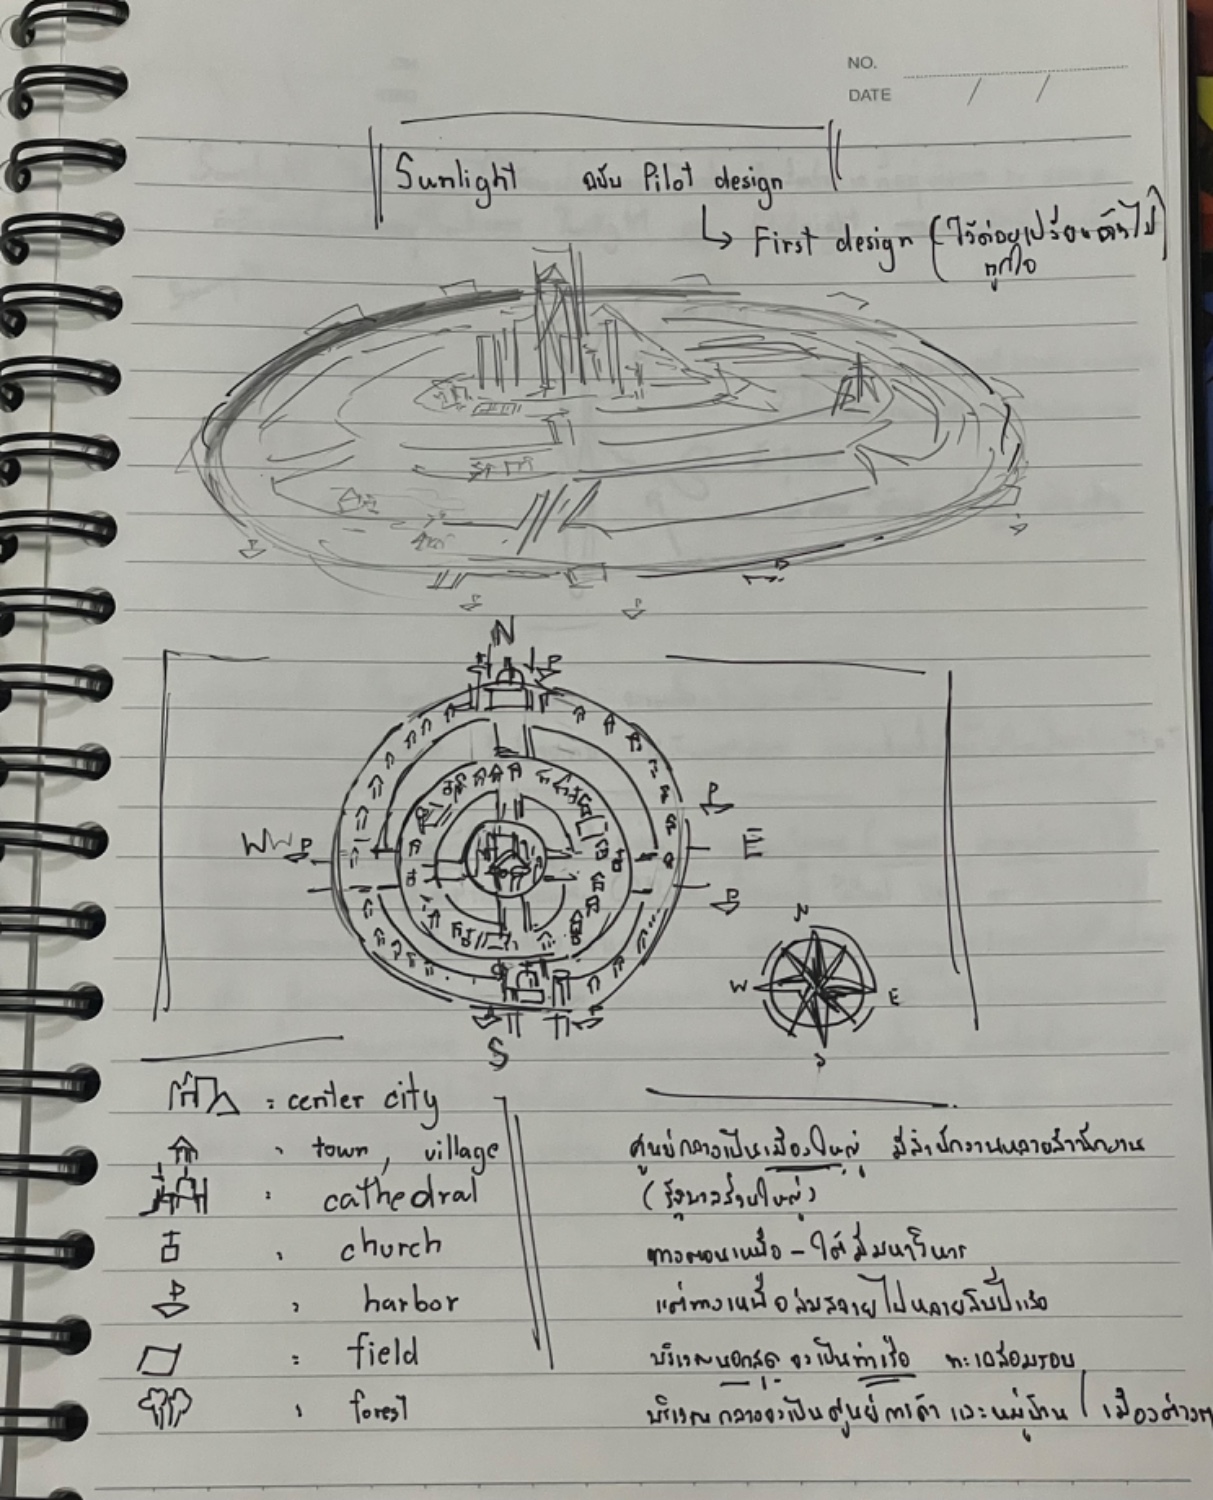 NO.
DATE / /
Sunlight ฉบับ Pilot design
↳ First design (ไว้ค่อยเปลี่ยนถ้าไม่
ถูกใจ)
N
W
E
S
N
W E
S
: center city
: town, village
: cathedral
: church
: harbor
: field
: forest
ศูนย์กลางเป็นเมืองใหญ่ มีสำนักงานหลายสำนักงาน
(รัฐบาลส่วนใหญ่)
ทางตอนเหนือ - ใต้ มีมหาวิหาร
แต่ทางเหนือล่มสลายไปหลายสิบปีแล้ว
บริเวณนอกสุด จะเป็นท่าเรือ ทะเลล้อมรอบ
บริเวณกลางจะเป็นศูนย์การค้า และหมู่บ้าน